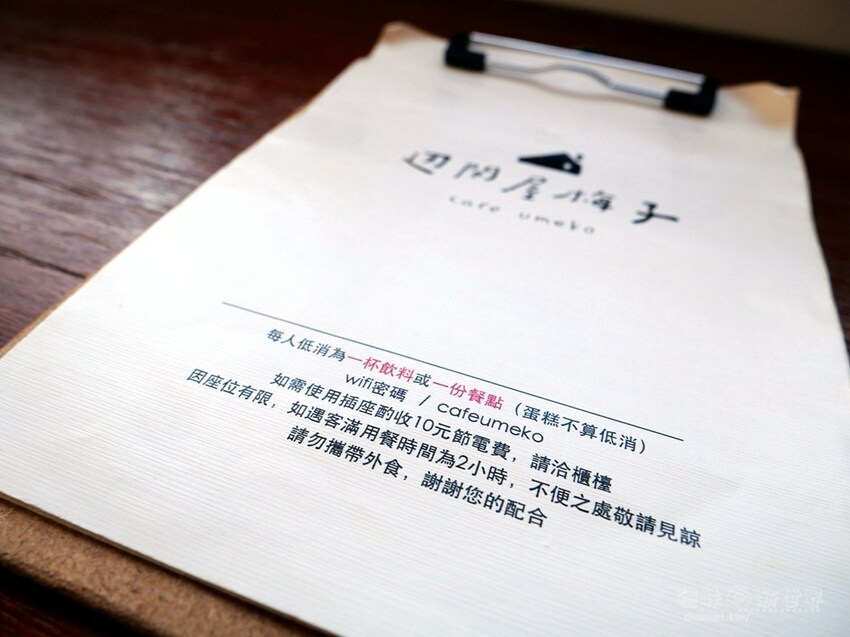 辺間屋梅子
cafe umeko
每人低消為一杯飲料或一份餐點（蛋糕不算低消）
wifi密碼 / cafeumeko
如需使用插座酌收10元節電費，請洽櫃檯
因座位有限，如遇客滿用餐時間為2小時，不便之處敬請見諒
請勿攜帶外食，謝謝您的配合